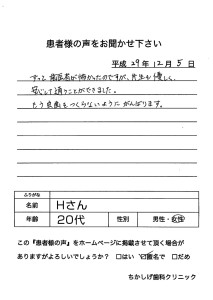 患者様の声をお聞かせ下さい
平成 29年 12月 5日
ずっと歯医者が怖かったのですが、先生も優しく、
安心して通うことができました。
もう虫歯をつくらないようにがんばります。
ふりがな
名前 Hさん
年齢 20代 性別 男性・女性
この『患者様の声』をホームページに掲載させて頂く場合が
ありますがよろしいでしょうか? □はい ☑匿名で □だめ
ちかしげ歯科クリニック